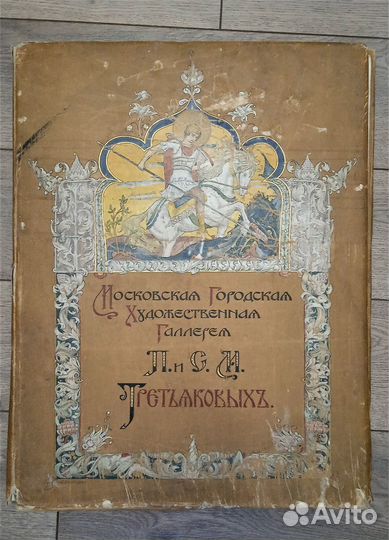 Московская Городская
Художественная
Галлерея
П. и С. М.
Третьяковыхъ.
Avito